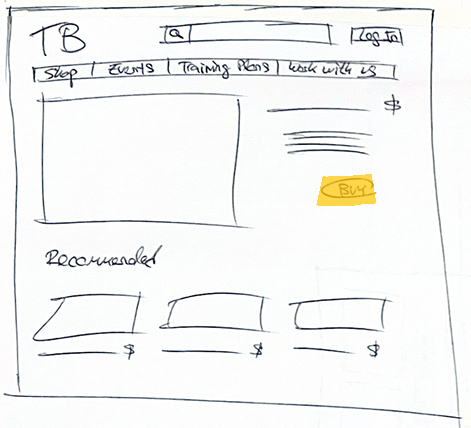 TB
Log In
Shop | Events | Training Plans | Work with us
$
Buy
Recommended
$ $ $